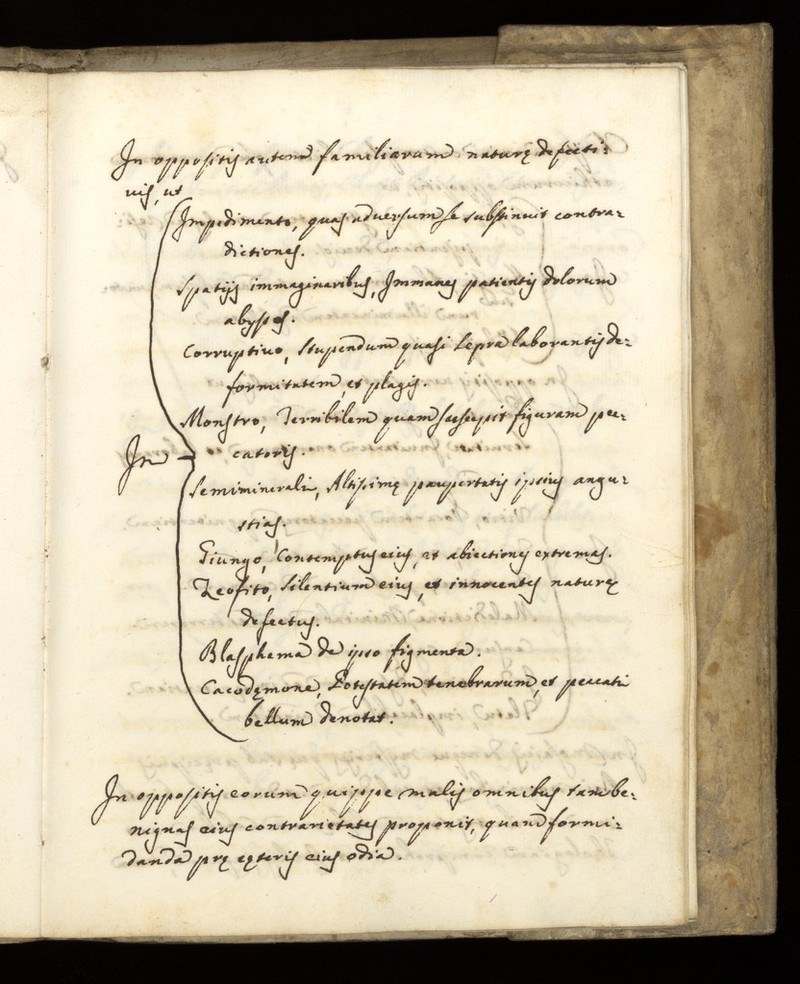 In oppositis autem familiarum naturę defecti=
vis, ut
Impedimento, quas adversum se substinuit contra=
dictiones.
Spatijs immaginaribus, Immanes patientis dolorum
abyssos.
Corruptivo, Stupendum quasi Lepra laborantis de=
formitatem, et plagis.
Monstro, Terribilem quam suscepit figuram pec=
In catoris.
Semiminerali, Altissimę paupertatis ipsius angu=
stias.
Fiungo, Contemptus eius, et abiectiones extremas.
Zeofito, Silentium eius, et innocentis naturę
defectus.
Blasphema de ipso figmenta.
Cacodęmone, Potestatem tenebrarum, et peccati
bellum denotat.
In oppositis eorum quippe malis omnibus tam be=
nignas eius contrarietates proponit, quam formi=
danda prę cęteris eius odia.